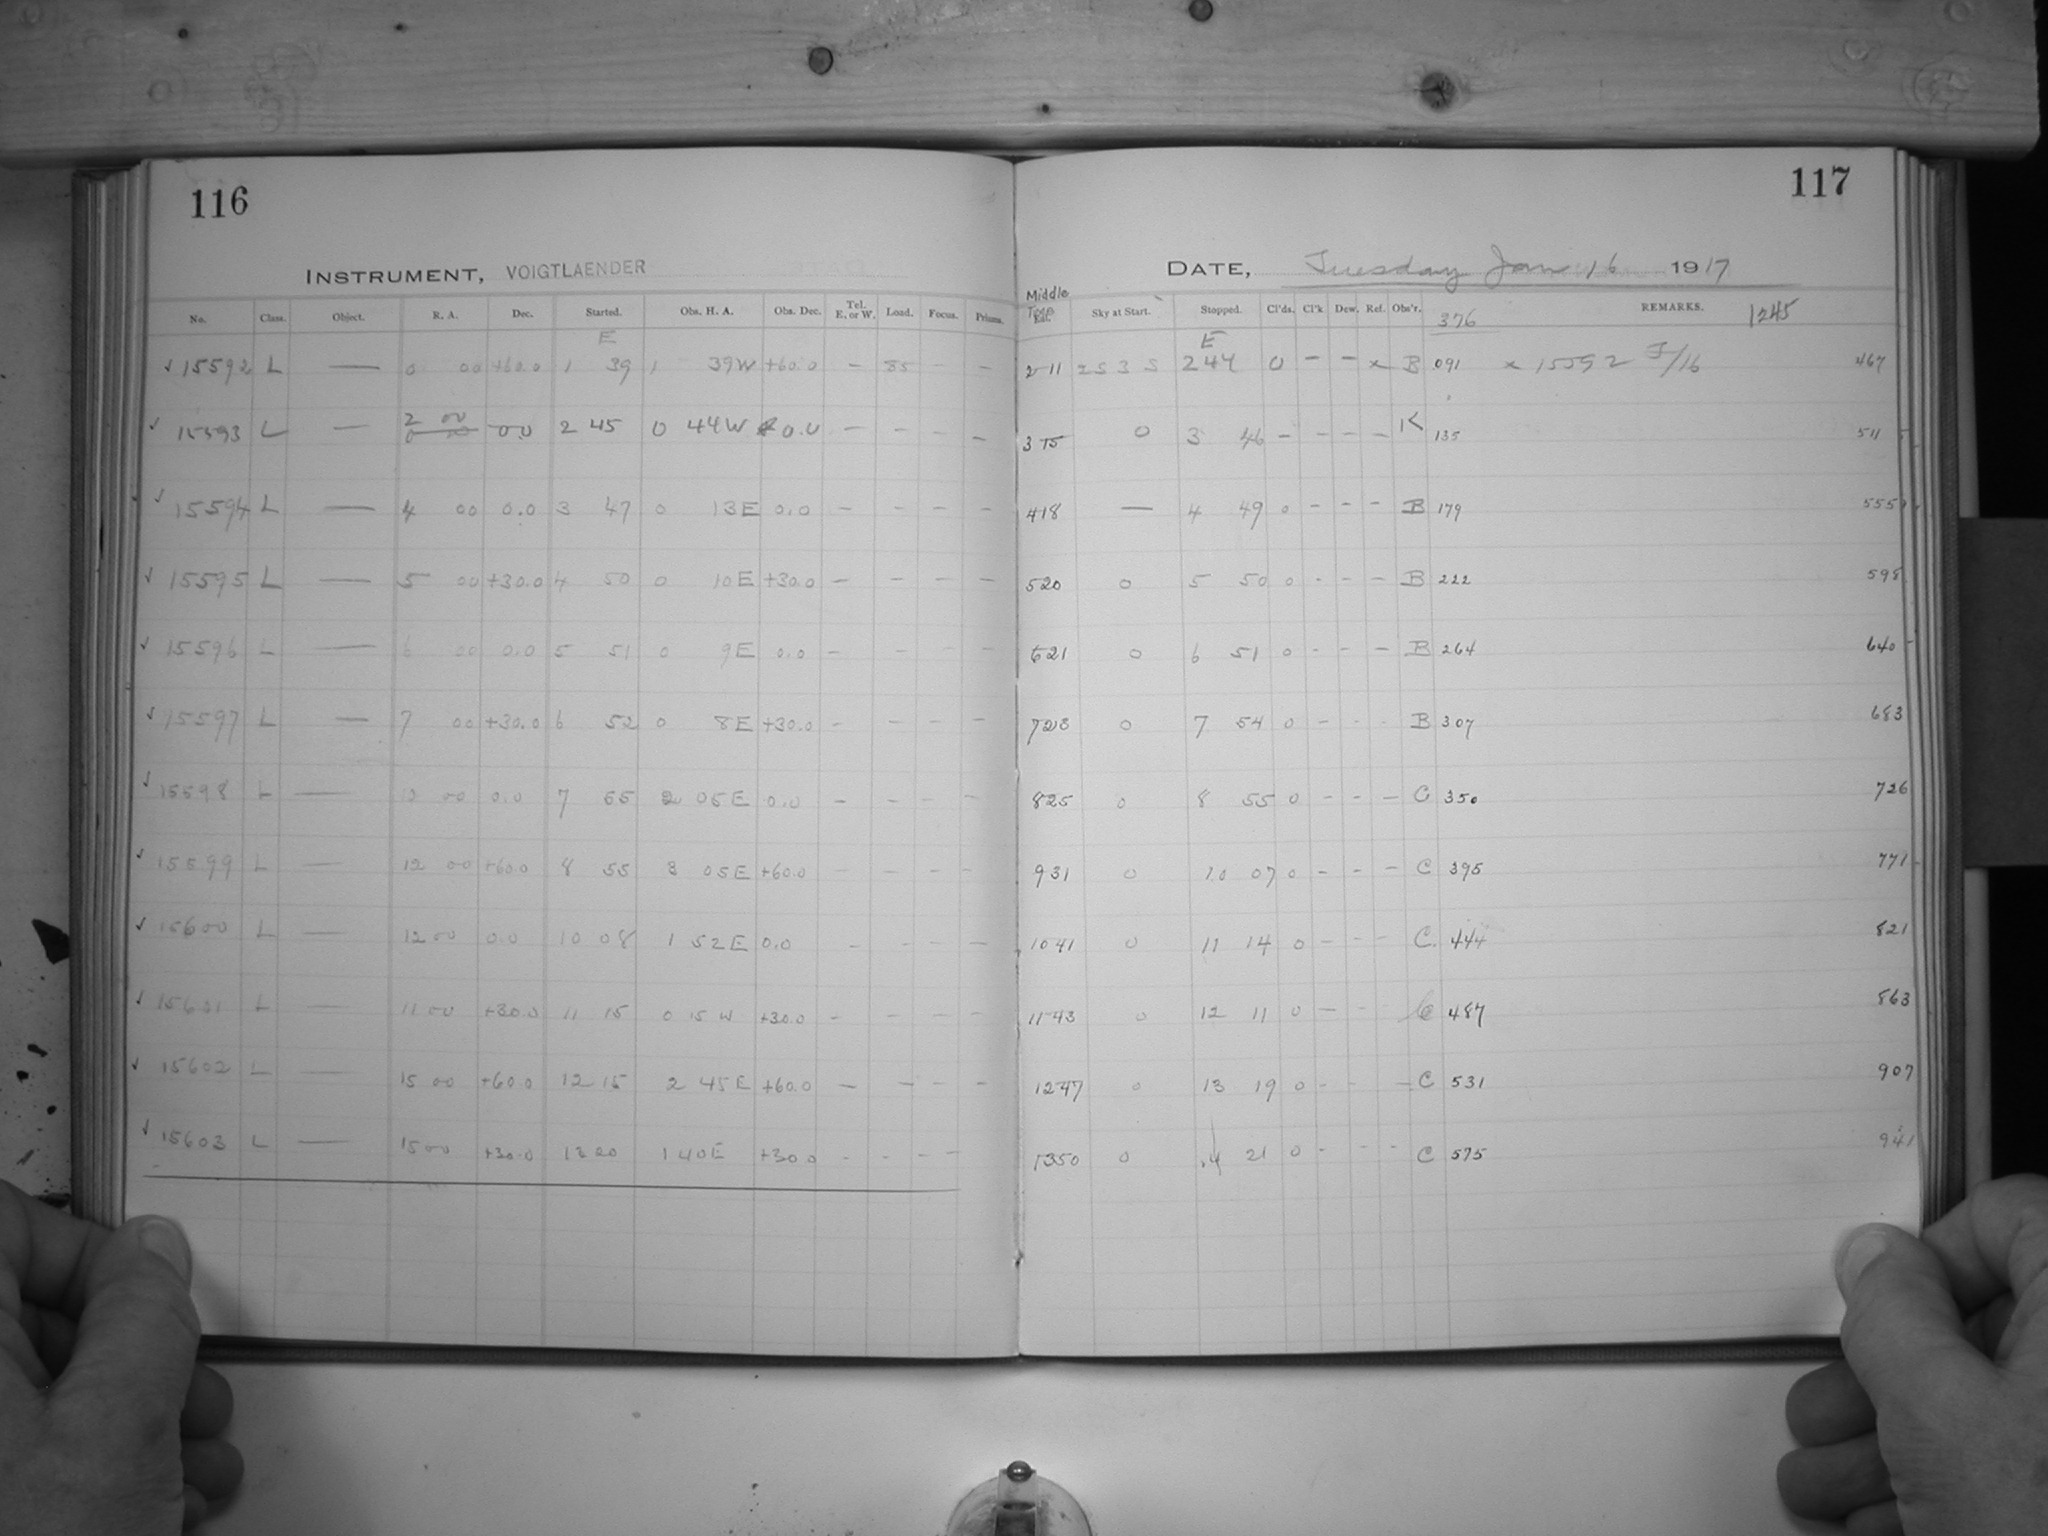 116
117
INSTRUMENT, VOIGTLAENDER
DATE, Tuesday Jan 16 1917
No. Class. Object. R. A. Dec. Started. Obs. H. A. Obs. Dec. Tel. E. or W. Load. Focus. Prisms. Middle Time Ext. Sky at Start. Stopped. Cl'ds. Cl'k Dew. Ref. Obs'r. 376 REMARKS. 1245
E E
✓ 15592 L — 0 00 +60.0 1 39 1 39W +60.0 — 85 — — 2 11 2S 3 S 2 44 0 — — x B 091 x 15592 I/16 467
✓ 15593 L — 2 00 00 2 45 0 44W 0.0 — — — — 3 15 0 3 46 — — — — K 135 511
✓ 15594 L — 4 00 0.0 3 47 0 13E 0.0 — — — — 4 18 — 4 49 0 — — — B 179 555
✓ 15595 L — 5 00 +30.0 4 50 0 10E +30.0 — — — — 5 20 0 5 50 0 — — — B 222 598
✓ 15596 L — 6 00 0.0 5 51 0 9E 0.0 — — — — 6 21 0 6 51 0 — — — B 264 640
✓ 15597 L — 7 00 +30.0 6 52 0 8E +30.0 — — — — 7 23 0 7 54 0 — - - B 307 683
✓ 15598 L — 10 00 0.0 7 55 2 05E 0.0 — — — — 8 25 0 8 55 0 — — — C 350 726
✓ 15599 L — 12 00 +60.0 8 55 3 05E +60.0 — — — — 9 31 0 10 07 0 — — — C 395 771
✓ 15600 L — 12 00 0.0 10 08 1 52E 0.0 — — — — 10 41 0 11 14 0 — — — C. 444 821
✓ 15601 L — 11 00 +30.0 11 15 0 15 W +30.0 — — — — 11 43 0 12 11 0 — — C 487 863
✓ 15602 L — 15 00 +60 0 12 15 2 45E +60.0 — — — — 12 47 0 13 19 0 — — C 531 907
✓ 15603 L — 15 00 +30.0 13 20 1 40E +30 0 — — — — 13 50 0 14 21 0 — — — C 575 941